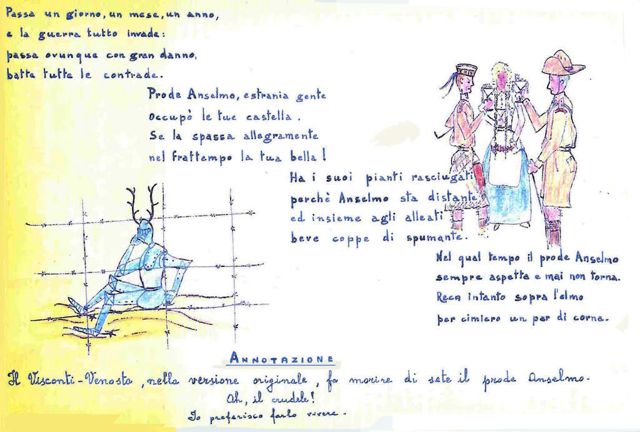 Passa un giorno, un mese, un anno,
e la guerra tutto invade:
passa ovunque con gran danno,
batte tutte le contrade.
Prode Anselmo, estrania gente
occupò le tue castella.
Se la spassa allegramente
nel frattempo la tua bella!
Ha i suoi pianti rasciugati
perchè Anselmo sta distante
ed insieme agli alleati
beve coppe di spumante.
Nel qual tempo il prode Anselmo
sempre aspetta e mai non torna.
Reca intanto sopra l'elmo
per cimiero un par di corna.
ANNOTAZIONE
Il Visconti-Venosta, nella versione originale, fa morire di sete il prode Anselmo.
Oh, il crudele!
Io preferisco farlo vivere.